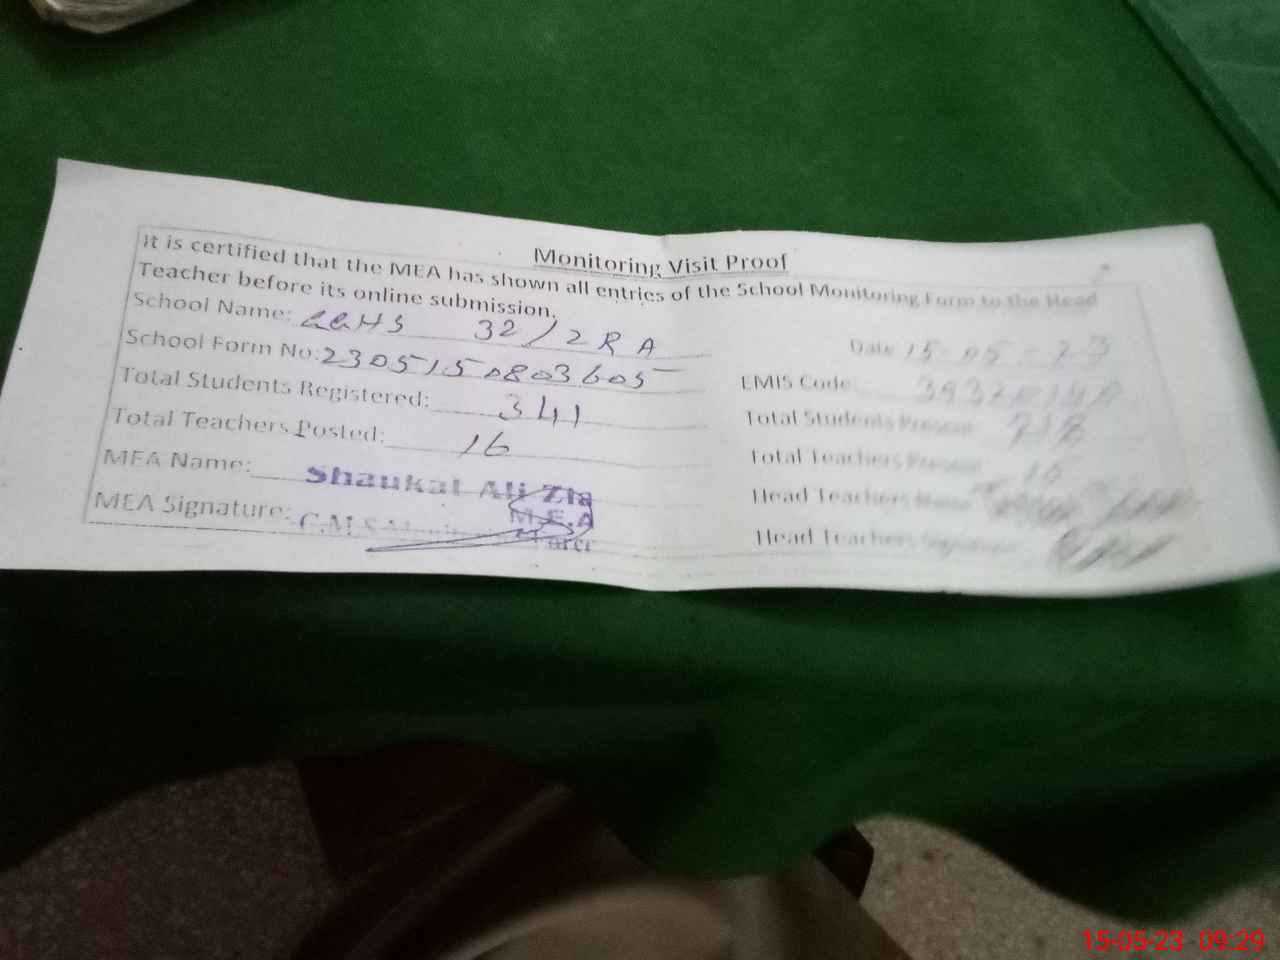 Monitoring Visit Proof
It is certified that the MEA has shown all entries of the School Monitoring Form to the Head
Teacher before its online submission.
School Name: GGHS 32/2RA
Date 15-05-23
School Form No: 2305150803605
EMIS Code
Total Students Registered: 341
Total Students Present
Total Teachers Posted: 16
Total Teachers Present
MEA Name: Shaukat Ali Zia
M.E.A
Head Teachers Name
MEA Signature:
Head Teachers Signature
15-05-23 09:29